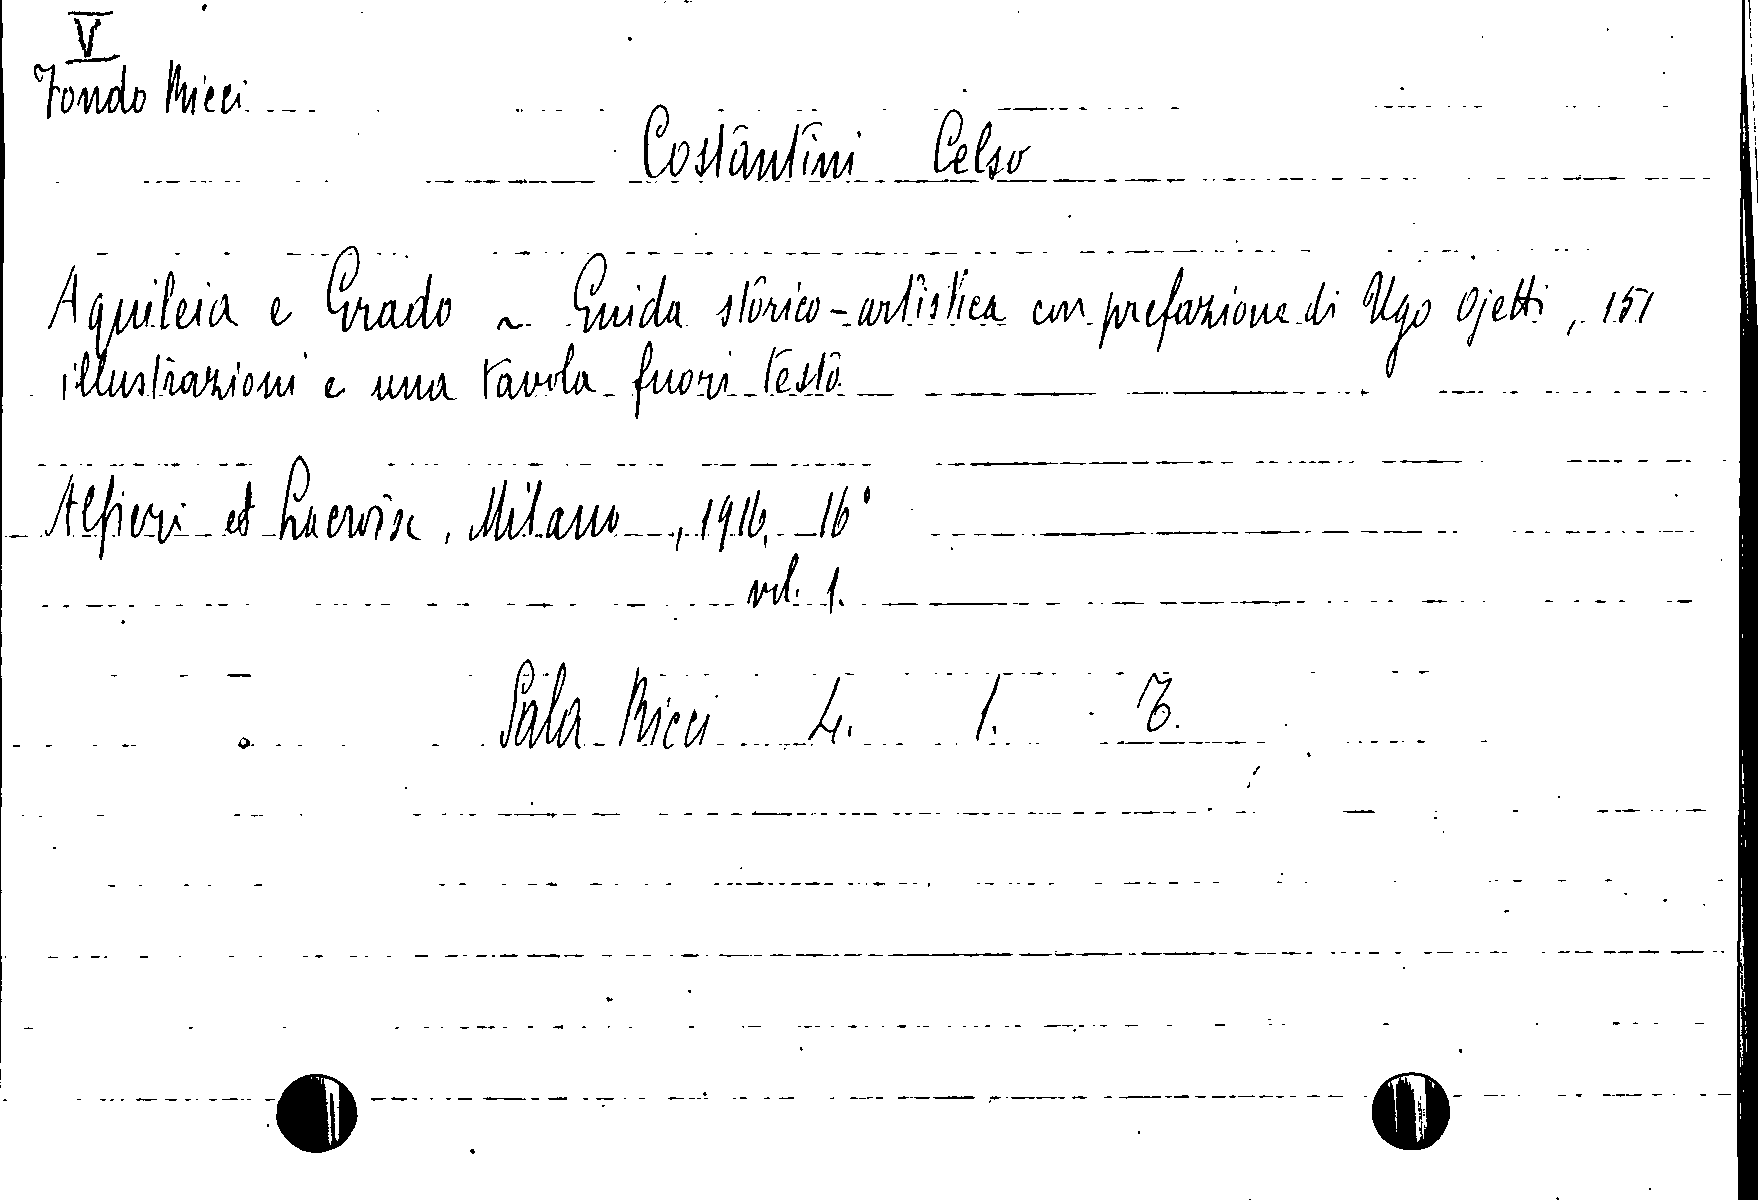 V
Fondo Ricci
Costantini Celso
Aquileia e Grado ~ Guida storico-artistica con prefazione di Ugo Ojetti, 151
illustrazioni e una tavola fuori testo
Alfieri et Lacroix, Milano, 1916, 16°
vol. 1.
Sala Ricci 4. 1. 7.